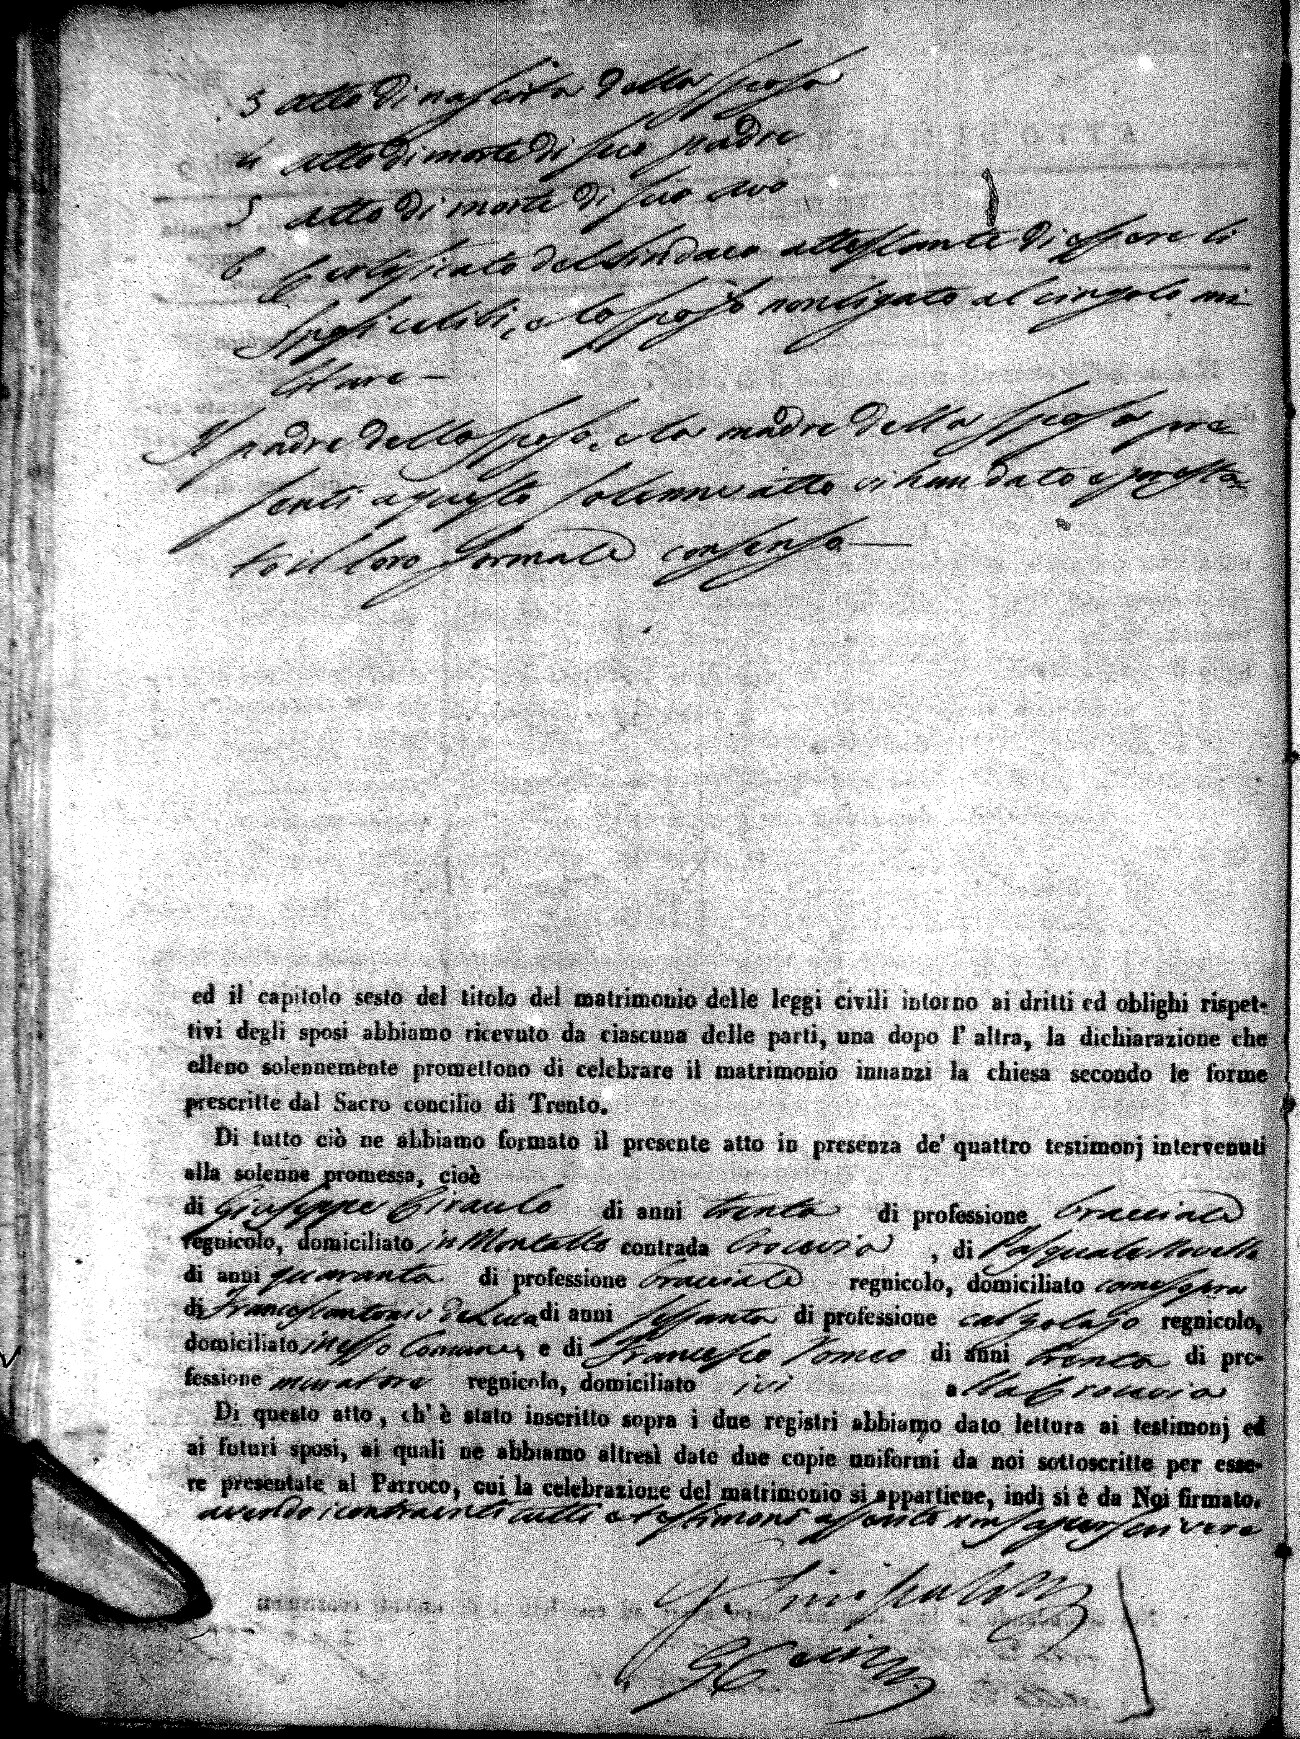 3 atto di nascita della sposa
4 atto di morte di suo padre
5 atto di morte di suo avo
6 Certificato del Sindaco attestante di essere li
sposi celibi, e lo sposo non ligato al cingolo mi-
litare —
Il padre dello sposo, e la madre della sposa pre-
senti a questo solenne atto ci han dato e presta-
to il loro formale consenso —
ed il capitolo sesto del titolo del matrimonio delle leggi civili intorno ai dritti ed oblighi rispet-
tivi degli sposi abbiamo ricevuto da ciascuna delle parti, una dopo l' altra, la dichiarazione che
elleno solennemente promettono di celebrare il matrimonio innanzi la chiesa secondo le forme
prescritte dal Sacro concilio di Trento.
Di tutto ciò ne abbiamo formato il presente atto in presenza de' quattro testimonj intervenuti
alla solenne promessa, cioè
di Giuseppe Ciraulo di anni trenta di professione bracciale
regnicolo, domiciliato in Montalto contrada Crocevia , di Pasquale Novello
di anni quaranta di professione bracciale regnicolo, domiciliato come sopra
di Francescantonio de Luca di anni sessanta di professione calzolajo regnicolo,
domiciliato in esso Comune, e di Francesco Tomeo di anni trenta di pro-
fessione muratore regnicolo, domiciliato ivi alla Crocevia
Di questo atto, ch' è stato inscritto sopra i due registri abbiamo dato lettura ai testimonj ed
ai futuri sposi, ai quali ne abbiamo altresì date due copie uniformi da noi sottoscritte per esse-
re presentate al Parroco, cui la celebrazione del matrimonio si appartiene, indi si è da Noi firmato.
avendo i contraenti tutti e testimoni asserito non saper scrivere